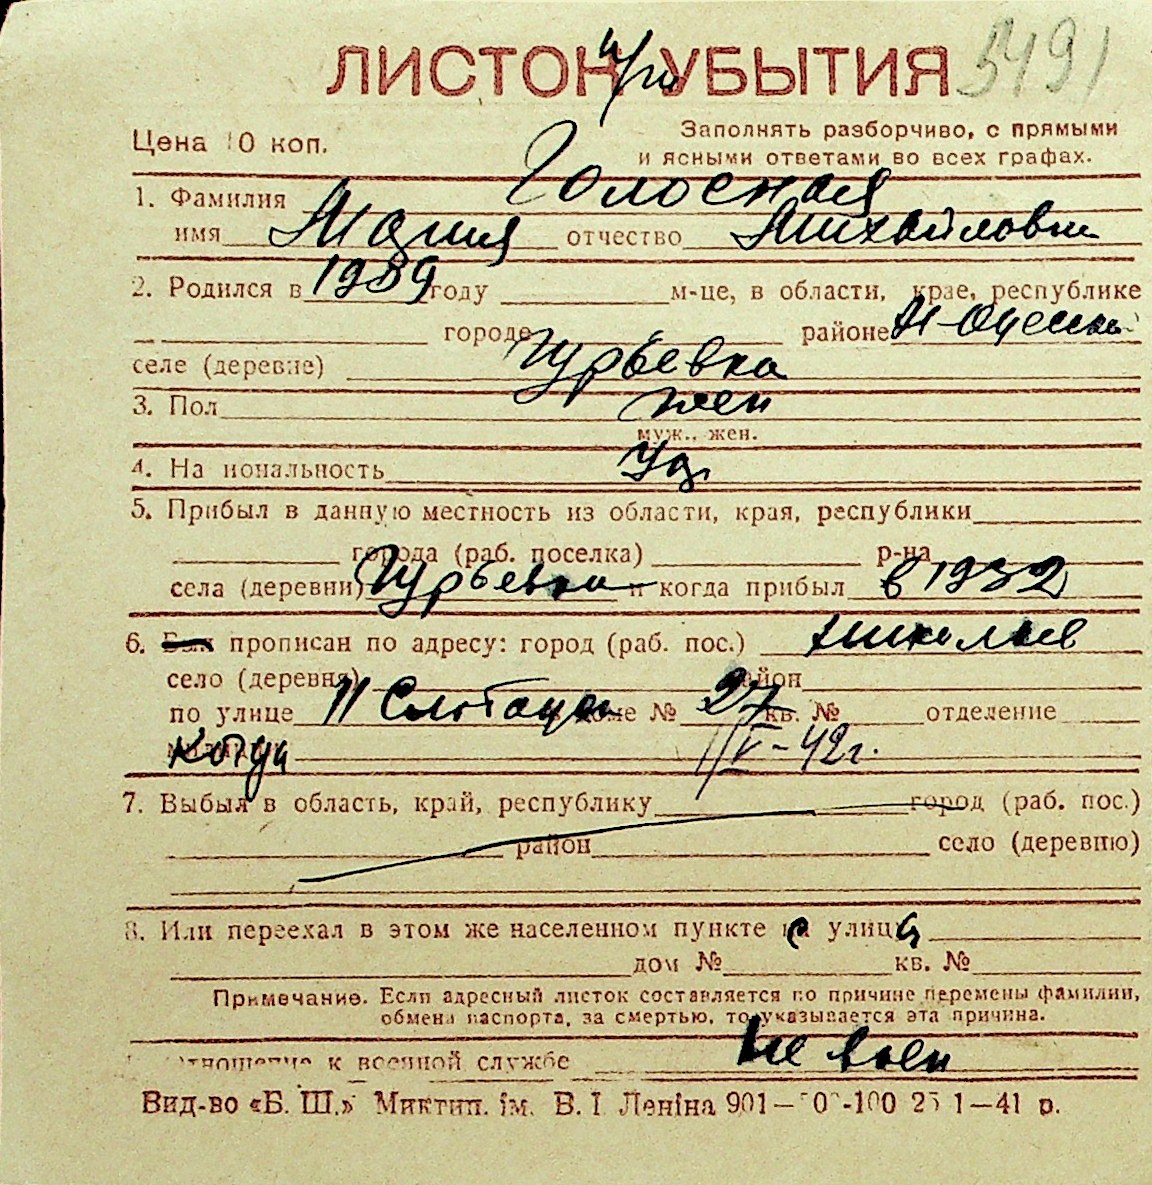 ЛИСТОК УБЫТИЯ 5491
Цена 10 коп.
Заполнять разборчиво, с прямыми
и ясными ответами во всех графах.
1. Фамилия Голосная
имя Мария отчество Михайловн
2. Родился в 1939 году м-це, в области, крае, республике
городе районе Н-Одесск
селе (деревне) Гурьевка
3. Пол жен
муж., жен.
4. Национальность Ук
5. Прибыл в данную местность из области, края, республики
города (раб. поселка) р-на
села (деревни) Гурьевка и когда прибыл в 1932
6. Был прописан по адресу: город (раб. пос.) Николаев
село (деревня) район
по улице 11 Слободск доме № 27 кв. № отделение
когда 11/V-42г.
7. Выбыл в область, край, республику город (раб. пос.)
район село (деревню)
8. Или переехал в этом же населенном пункте с улицы
дом № кв. №
Примечание. Если адресный листок составляется по причине перемены фамилии,
обмена паспорта, за смертью, то указывается эта причина.
Отношение к военной службе не воен
Вид-во «Б. Ш.» Миктип. ім. В. І. Леніна 1—41 р.